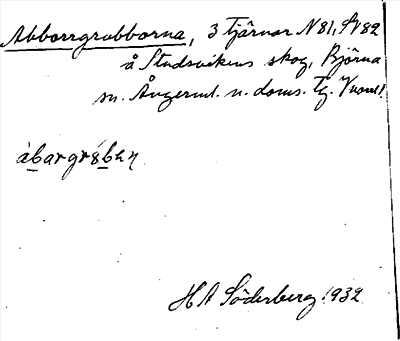 Abborrgrubborna, 3 tjärnar N81, Sv82
å Studsvikens skog, Björna
sn. Ångerml. n. doms. Tg.
åbargrɞban
H A Söderberg 1932